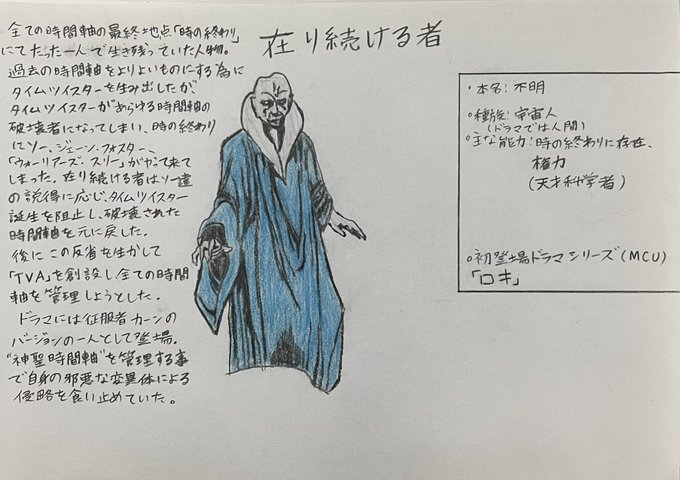 在り続ける者
全ての時間軸の最終地点「時の終わり」
にてたった一人で生き残っていた人物。
過去の時間軸をよりよいものにする為に
タイムツイスターを生み出したが、
タイムツイスターがあらゆる時間軸の
破壊者になってしまい、時の終わり
にソー、ジェーン・フォスター、
「ウォーリアーズ・スリー」がやって来て
しまった。在り続ける者はソー達
の説得に応じ、タイムツイスター
誕生を阻止し、破壊された
時間軸を元に戻した。
後にこの反省を生かして
「TVA」を創設し全ての時間
軸を管理しようとした。
ドラマには征服者カーンの
バージョンの一人として登場。
"神聖時間軸"を管理する事
で自身の邪悪な変異体による
侵略を食い止めていた。
・本名:不明
○種族:宇宙人
(ドラマでは人間)
○主な能力:時の終わりに存在、
権力
(天才科学者)
○初登場ドラマシリーズ(MCU)
「ロキ」